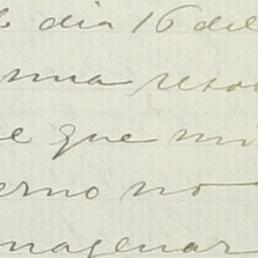 dia 16 del
una reso
e que mi
erno no
magenar